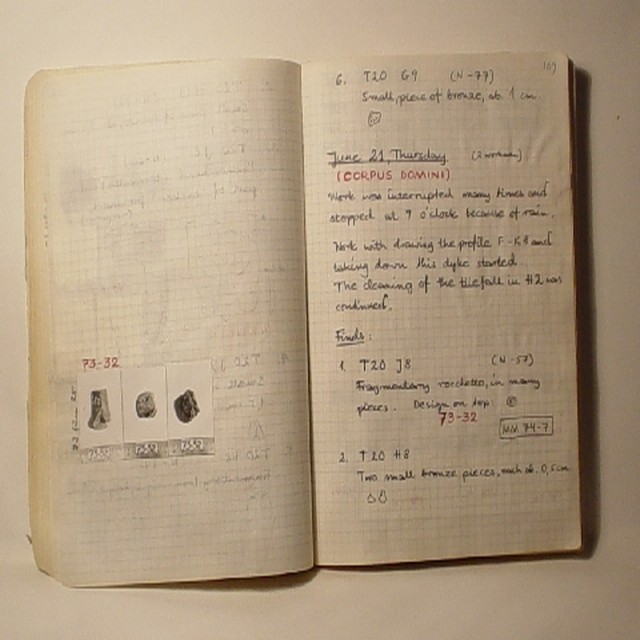 73-32
109
6. T20 G9 (N-77)
Small, piece of bronze, ab. 1 cm.
June 21, Thursday (2 workmen)
(CORPUS DOMINI)
Work was interrupted many times and
stopped at 9 o'clock because of rain.
Work with drawing the profile F-K8 and
taking down this dyke started.
The cleaning of the tilefall in H2 was
continued.
Finds:
1. T20 J8 (N-57)
Fragmentary rocchetto, in many
pieces. Design on top:
73-32
MN 74-7
2. T20 H8
Two small bronze pieces, each ab. 0,5 cm